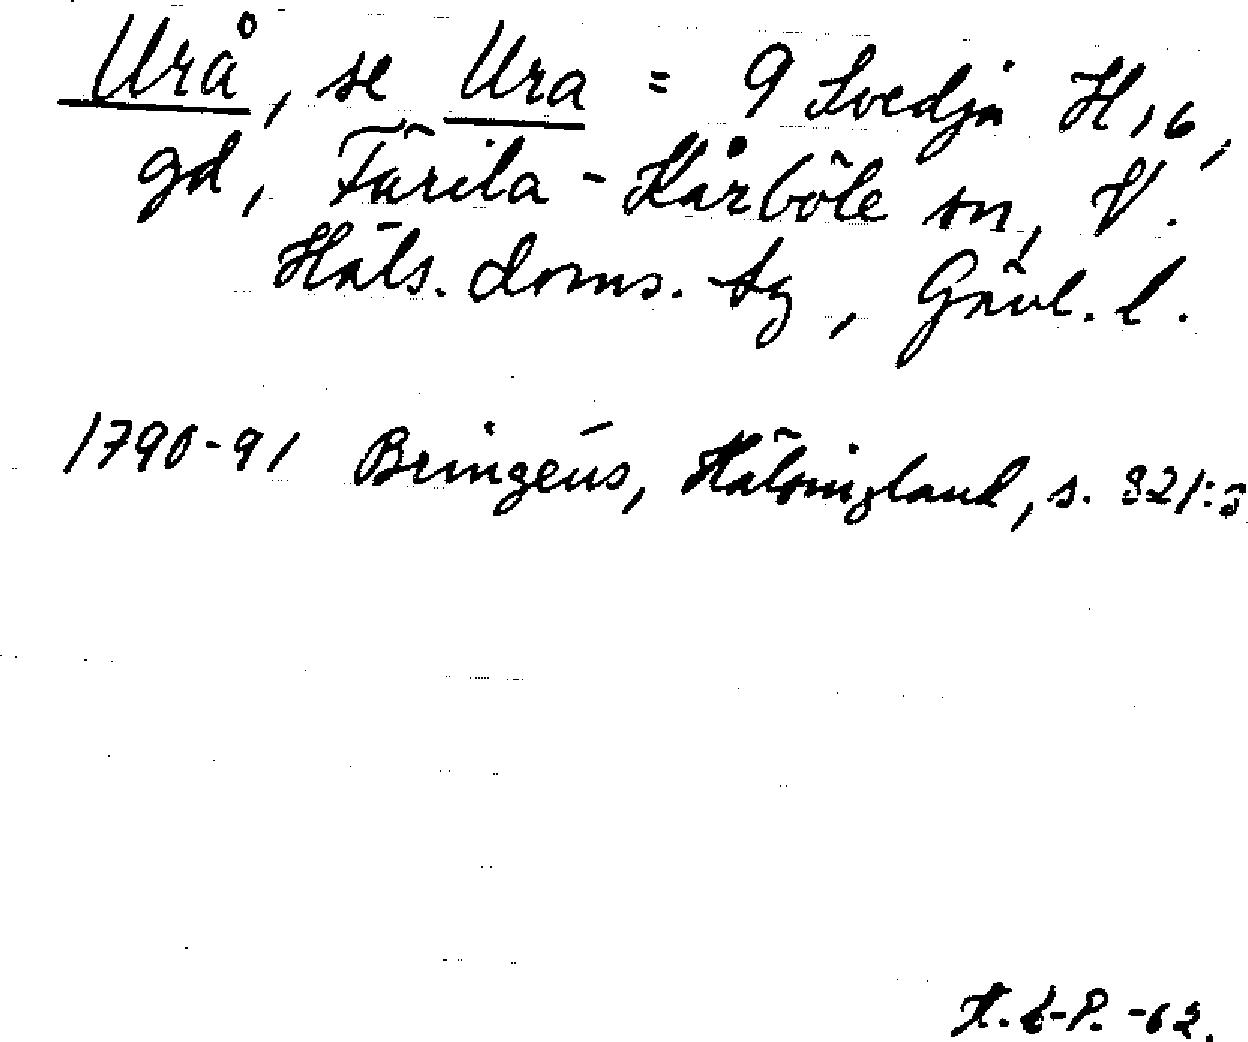 Urå, se Ura = 9 Svedja H16,
gd, Färila-Kårböle sn, V.
Häls. doms. tg, Gävl. l.
1790-91 Bringéus, Hälsingland, s. 321:3
H. L-P. -62.